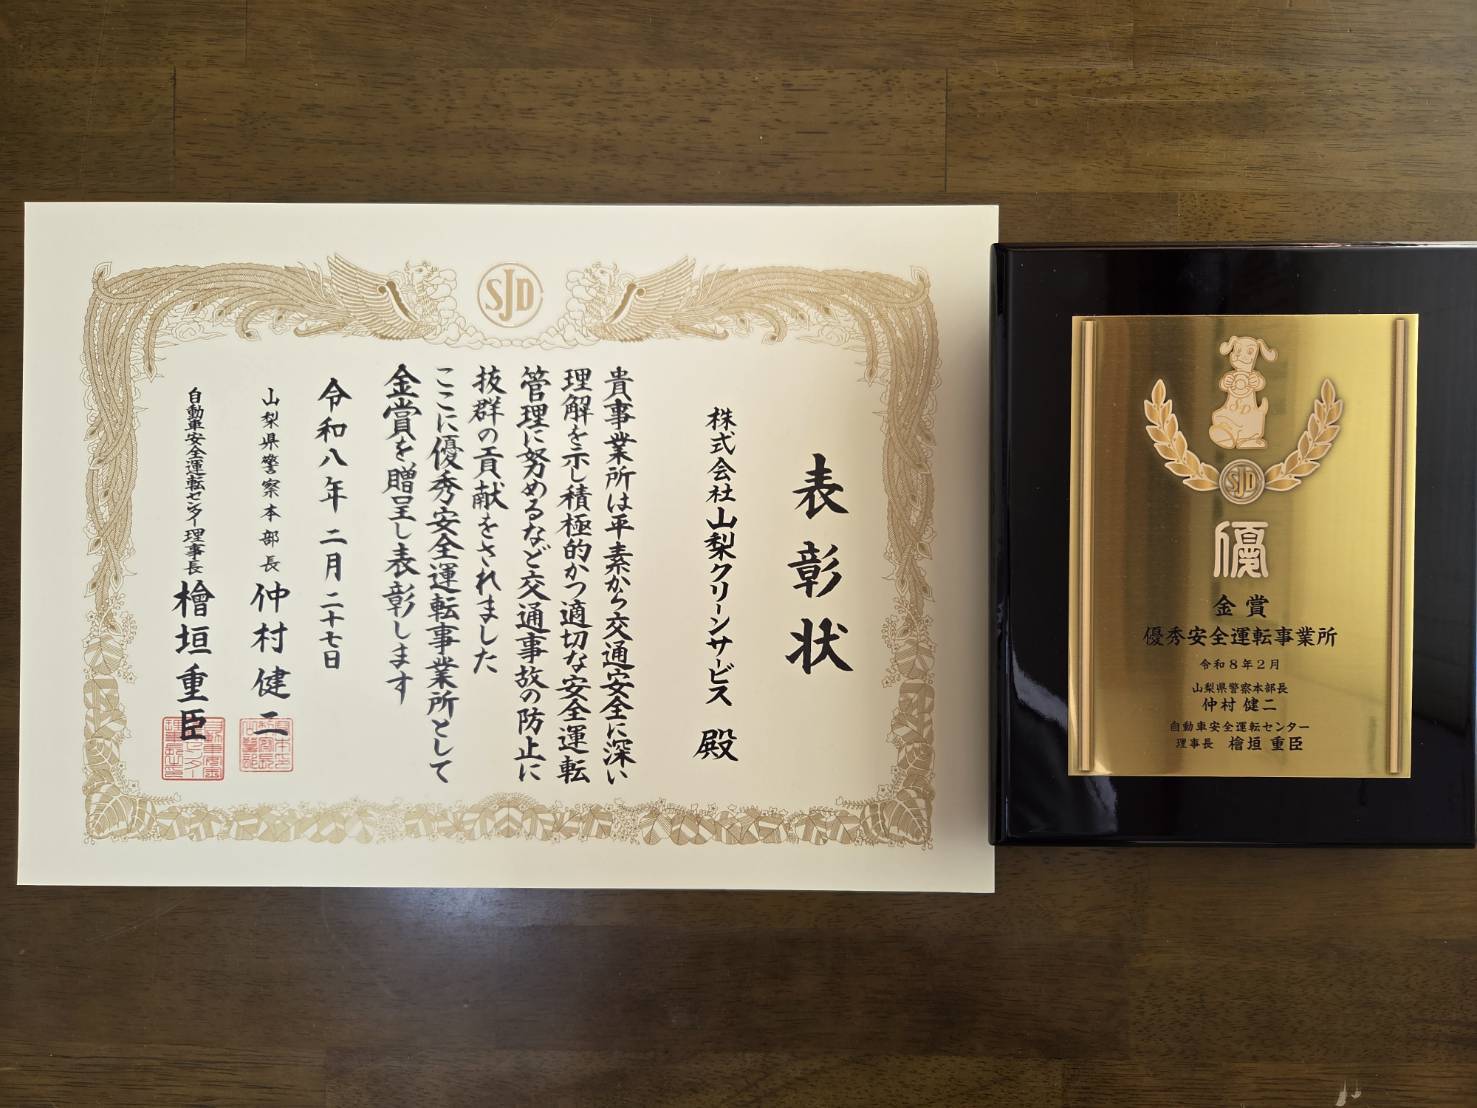 SJD
表彰状
株式会社山梨クリーンサービス 殿
貴事業所は平素から交通安全に深い
理解を示し積極的かつ適切な安全運転
管理に努めるなど交通事故の防止に
抜群の貢献をされました
ここに優秀安全運転事業所として
金賞を贈呈し表彰します
令和八年二月二十七日
山梨県警察本部長 仲村健二
自動車安全運転センター理事長 檜垣重臣
SJD
SJD
優
金賞
優秀安全運転事業所
令和8年2月
山梨県警察本部長
仲村 健二
自動車安全運転センター
理事長 檜垣 重臣